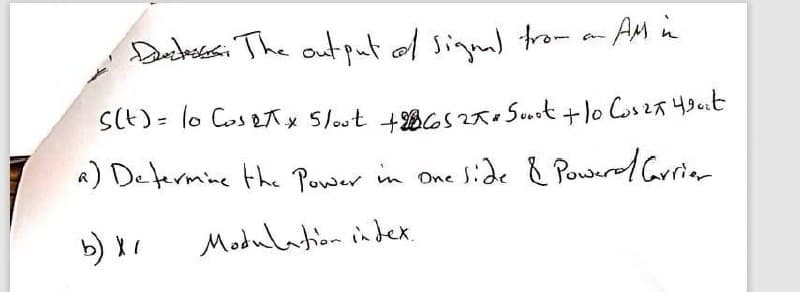 The output of signal from an AM is
S(t) = 10 Cos 2π x 5100t + 20 Cos 2π x 5000t + 10 Cos 2π 4900t
a) Determine the Power in one side & Power of Carrier
b) Modulation index.